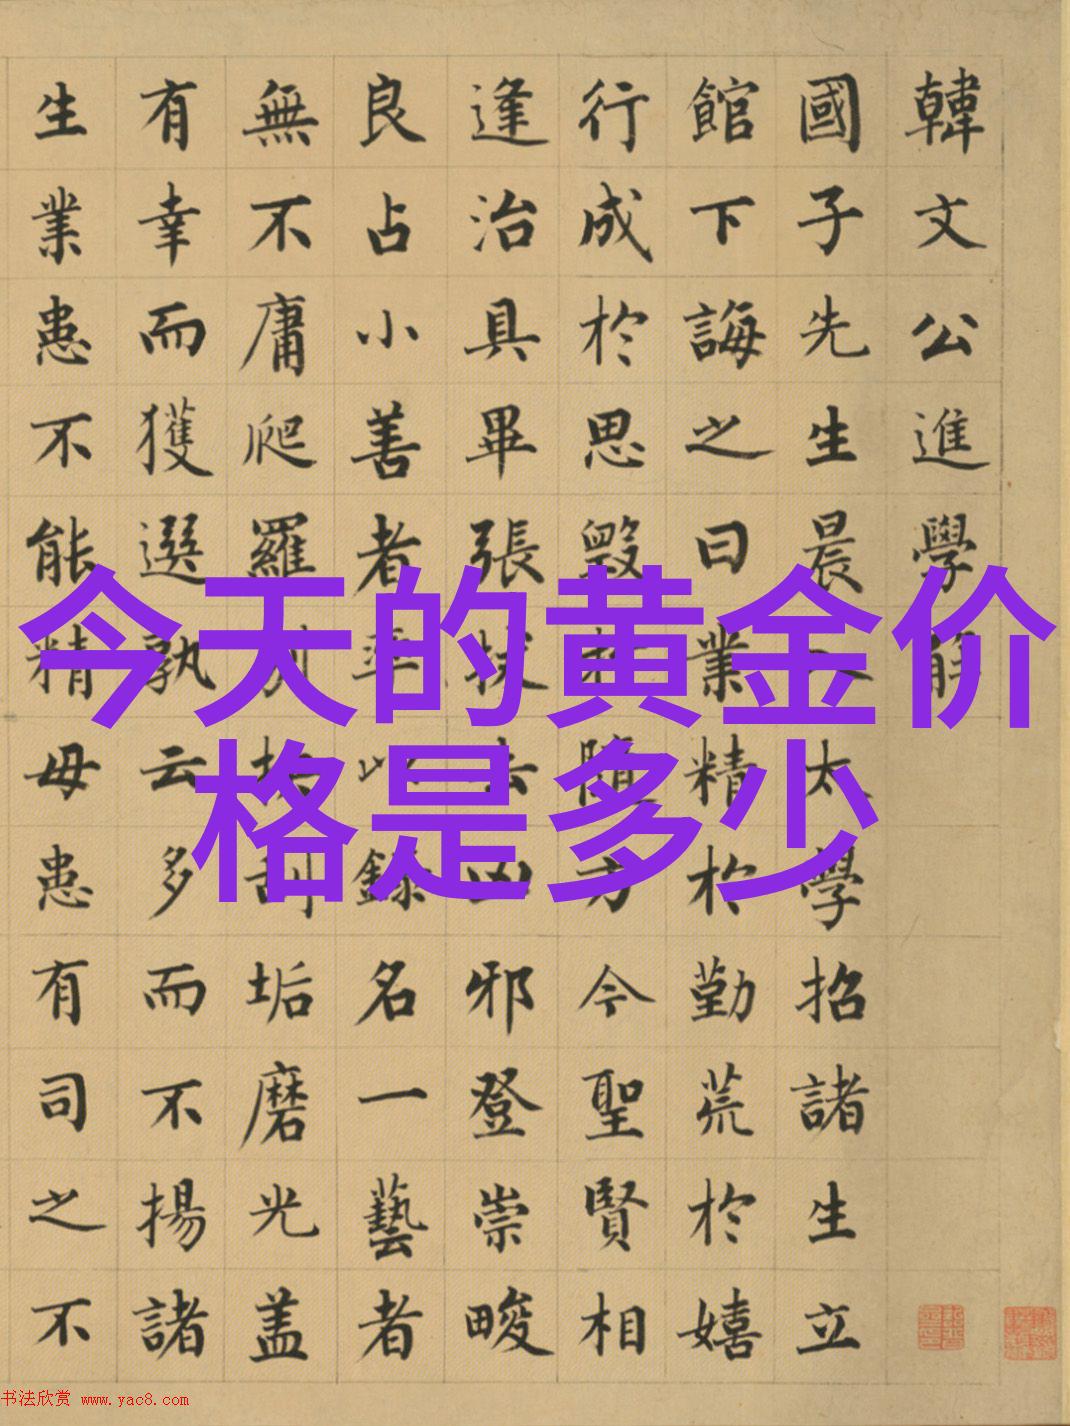 今天的黄金价
格是多少
韓文公進學解
國子先生晨入太學招諸生立
館下誨之曰業精於勤荒於嬉
行成於思毀於隨方今聖賢相
逢治具畢張拔去凶邪登崇畯
良占小善者率以録名一藝者
無不庸爬羅剔抉刮垢磨光盖
有幸而獲選孰云多而不揚諸
生業患不能精母患有司之不
书法欣赏 www.yac8.com